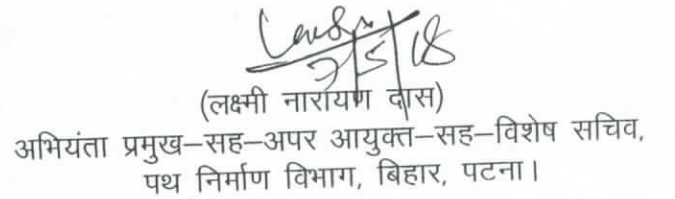 7/5/18
(लक्ष्मी नारायण दास)
अभियंता प्रमुख–सह–अपर आयुक्त–सह–विशेष सचिव,
पथ निर्माण विभाग, बिहार, पटना।